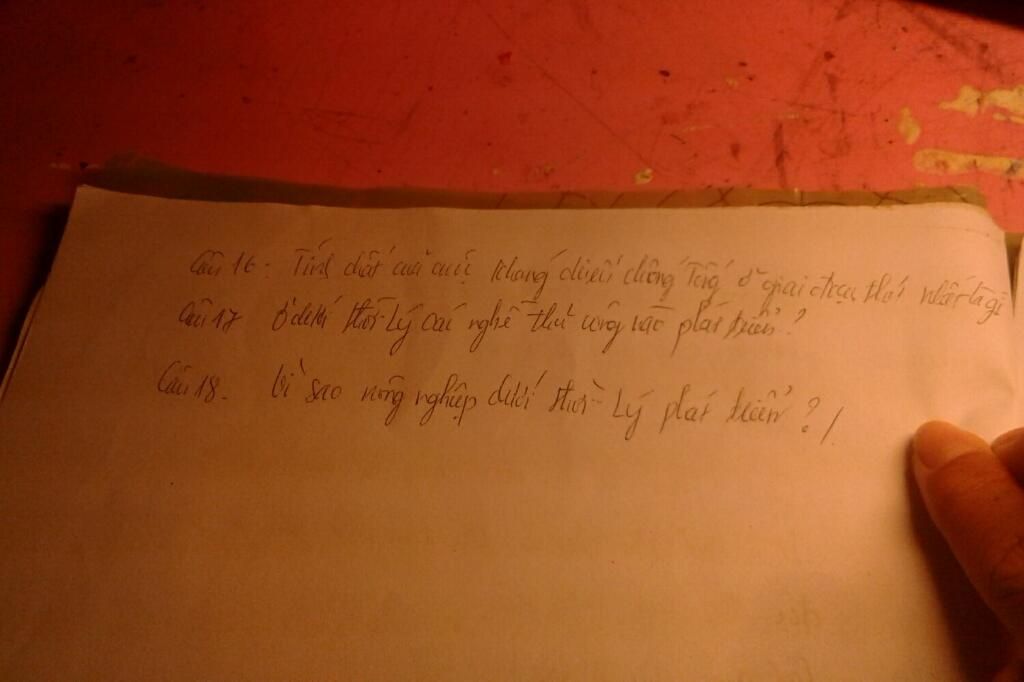 Câu 16. Tính chất của cuộc kháng chiến chống Tống ở giai đoạn thứ nhất là gì
Câu 17 Ở dưới thời Lý các nghề thủ công nào phát triển?
Câu 18. Vì sao nông nghiệp dưới thời Lý phát triển?/